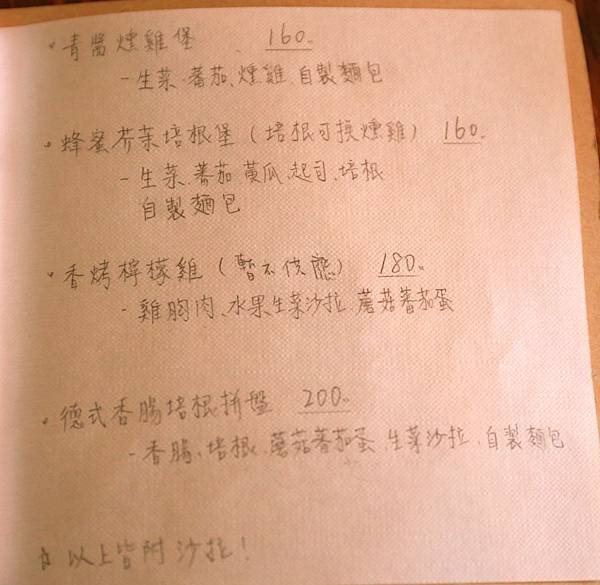 • 青醬燻雞堡 160.
- 生菜、蕃茄、燻雞、自製麵包
• 蜂蜜芥茉培根堡 (培根可換燻雞) 160.
- 生菜、蕃茄、黃瓜、起司、培根
自製麵包
• 香烤檸檬雞 (暫不供應) 180.
- 雞胸肉、水果生菜沙拉、蘑菇蕃茄蛋
• 德式香腸培根拼盤 200.
- 香腸、培根、蘑菇蕃茄蛋、生菜沙拉、自製麵包
☆ 以上皆附沙拉!